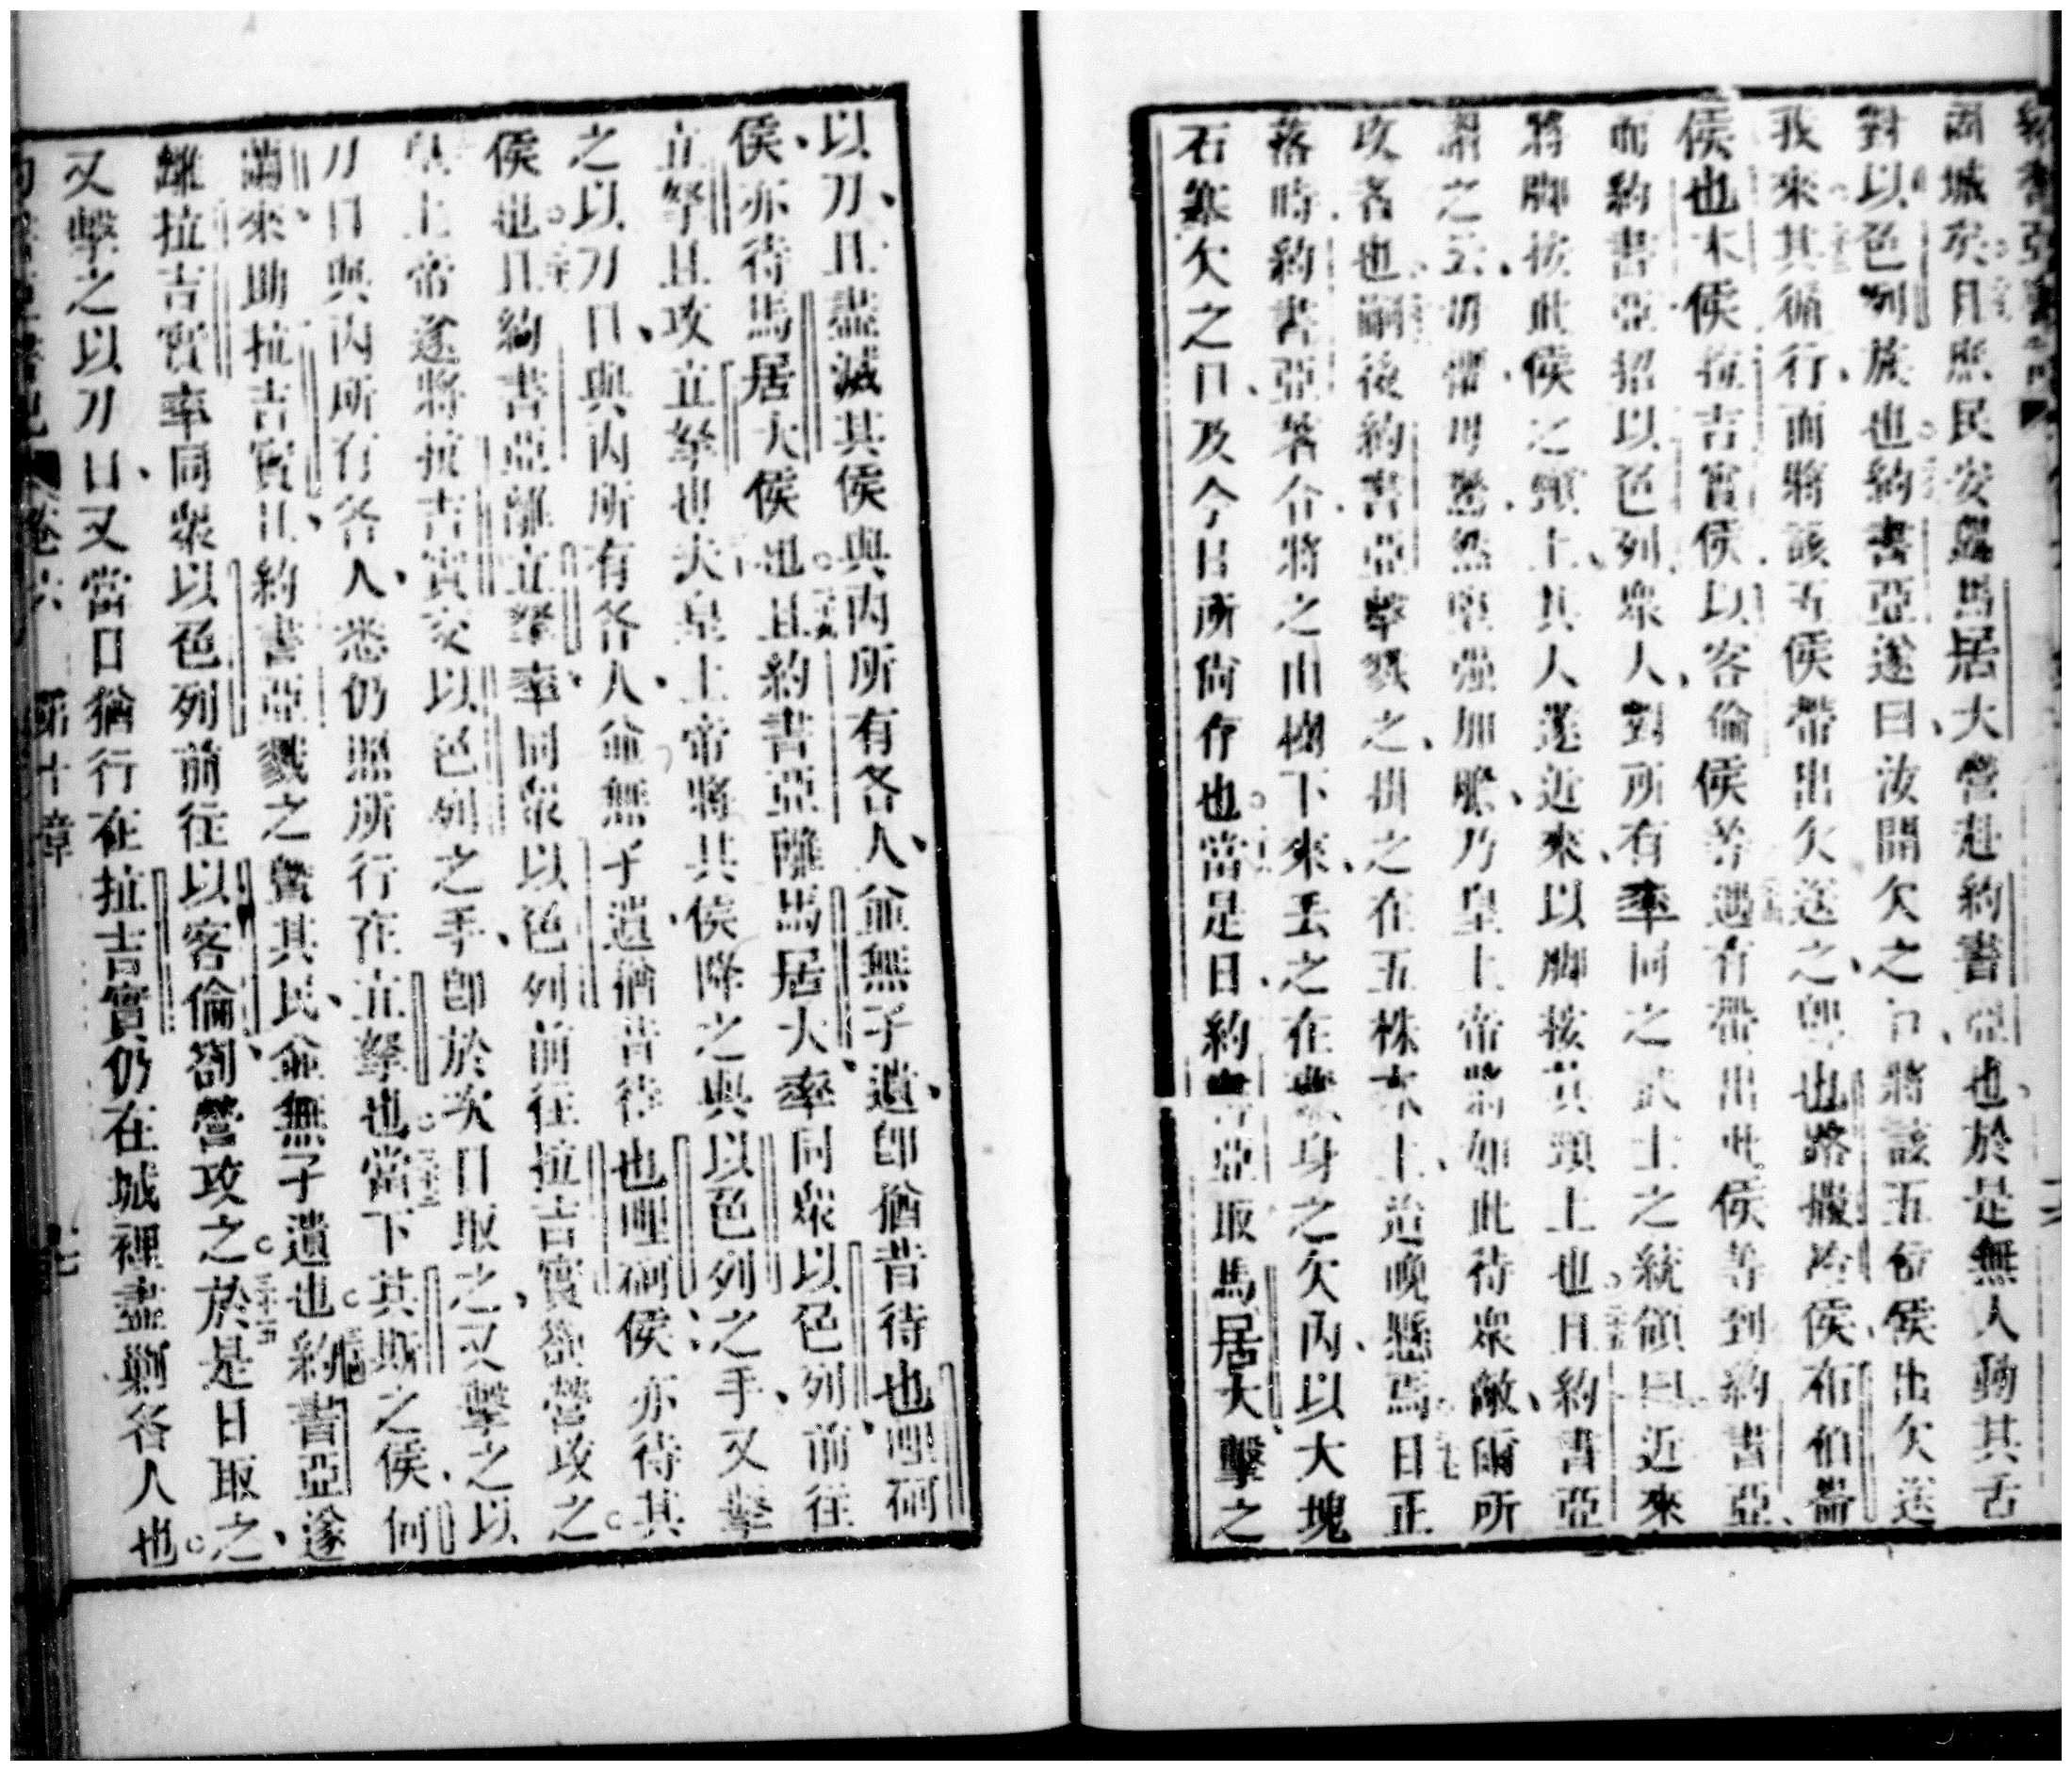 固城矣且庶民安歸馬居大營赴約書亞也於是無人動其舌
對以色列族也約書亞遂曰汝開欠之口將該五位侯出欠送
我來其循行而將該五侯帶出欠送之卽也路撒冷侯布伯崙
侯也末侯拉吉實侯以客倫侯等遇有帶出此侯等到約書亞
而約書亞招以色列眾人對所有率同之武士之統領曰近來
將脚按此侯之頸上其人遂近來以脚按其頸上也且約書亞
謂之云毋懼毋驚然堅强加膽乃皇上帝將如此待眾敵爾所
攻者也嗣後約書亞擊戮之掛之在五株木上迨晚懸焉日正
落時約書亞畧令將之由樹下來丟之在藏身之欠內以大塊
石塞欠之口及今日所尙存也當是日約書亞取馬居大擊之
以刀且盡滅其侯與內所有各人並無孑遺卽猶昔待也哩哥
侯亦待馬居大侯也且約書亞離馬居大率同眾以色列前往
立拏且攻立拏也夫皇上帝將其侯降之與以色列之手又擊
之以刀口與內所有各人並無孑遺猶昔待也哩哥侯亦待其
侯也且約書亞離立拏率同眾以色列前往拉吉實劄營攻之
皇上帝遂將拉吉實交以色列之手卽於次日取之又擊之以
刀口與內所有各人悉仍照所行在立拏也當下其斯之侯何
蘭來助拉吉實且約書亞戮之曁其民並無孑遺也約書亞遂
離拉吉實率同眾以色列前往以客倫劄營攻之於是日取之
又擊之以刀口又當日猶行在拉吉實仍在城裡盡剿各人也
卷六 第十章